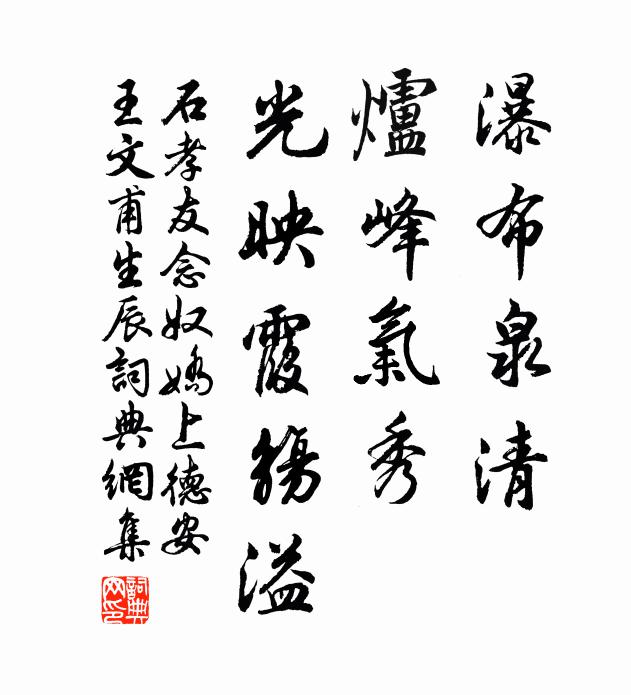 瀑布泉清
爐峰氣秀
光映霞觴溢
石孝友念奴嬌上德安
王文甫生辰詞典網集
詞典網印